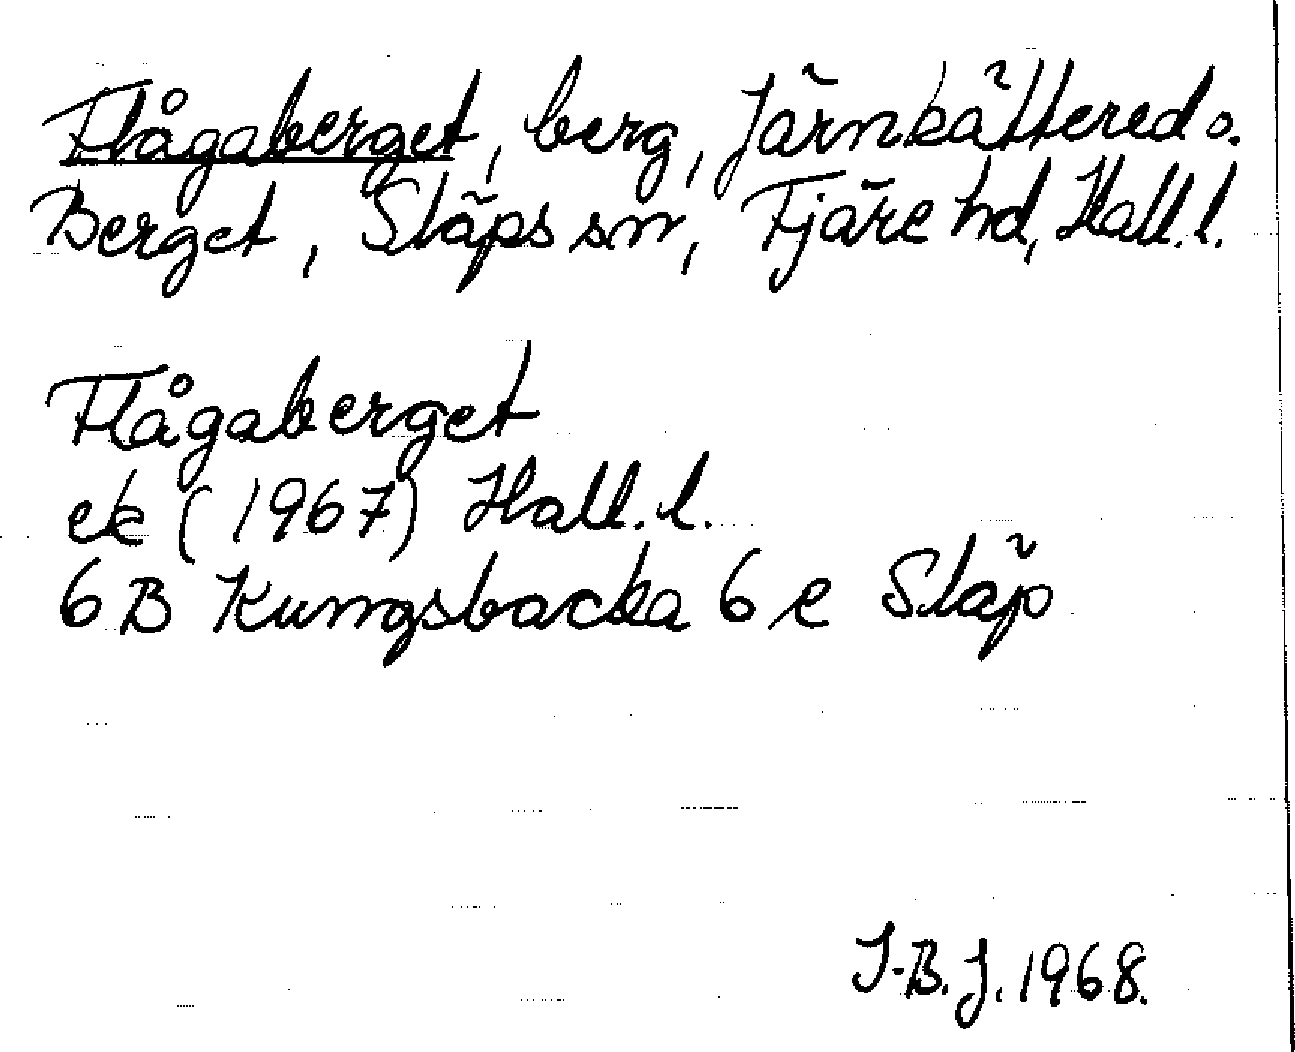 Flågaberget, berg, Järnkättered o.
Berget, Släps sn, Fjäre hd, Hall.l.
Flågaberget
ek (1967) Hall.l.
6B Kungsbacka 6e Släp
I-B.J. 1968.